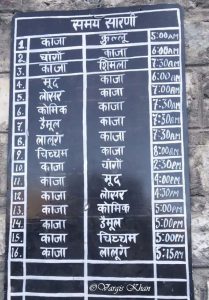 समय सारणी
1. काजा कुल्लू 5:00AM
2. चांगो काजा 6:00AM
3. काजा शिमला 7:30AM
4. मूद काजा 6:00AM
5. लोसर काजा 7:00AM
6. कोमिक काजा 7:30AM
7. डैमूल काजा 7:30AM
8. लालुंग काजा 7:30AM
9. चिच्चम काजा 8:00AM
10. काजा चांगो 2:30PM
11. काजा मूद 4:00PM
12. काजा लोसर 4:30PM
13. काजा कोमिक 5:00PM
14. काजा डैमूल 5:00PM
15. काजा चिच्चम 5:00PM
16. काजा लालुंग 5:15AM
© Vargis Khan